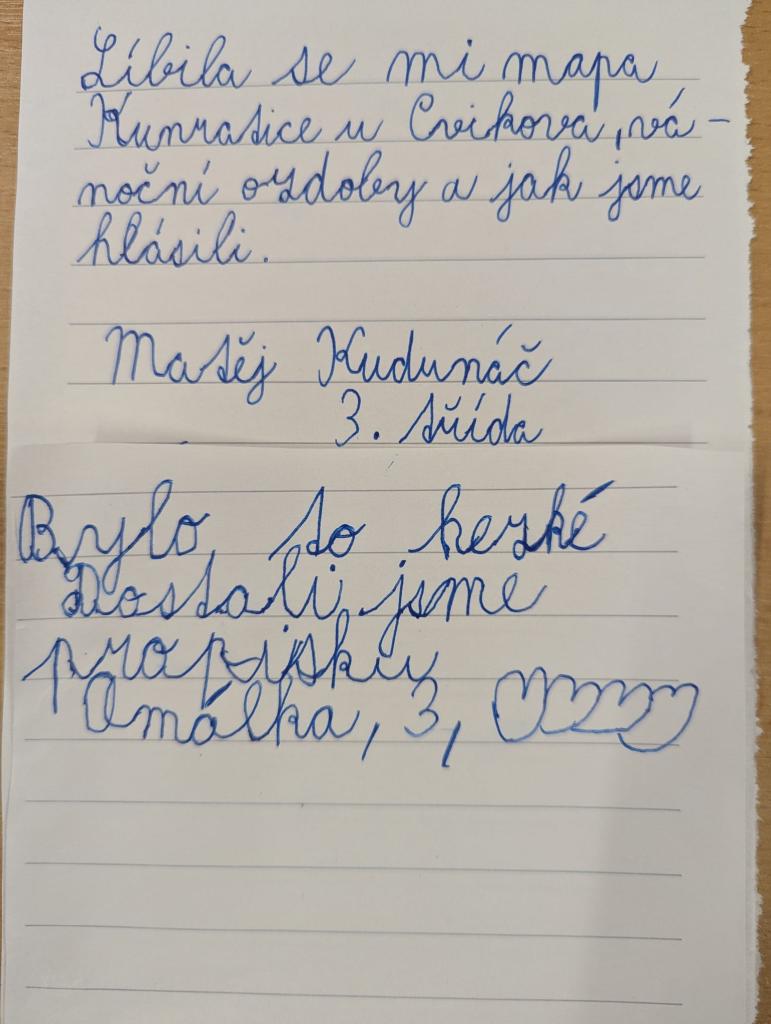 Líbila se mi mapa
Kunratice u Cvikova, vá-
noční ozdoby a jak jsme
hlásili.
Matěj Kudunáč
3. třída
Bylo to hezké
Dostali jsme
propisku
Amálka, 3,